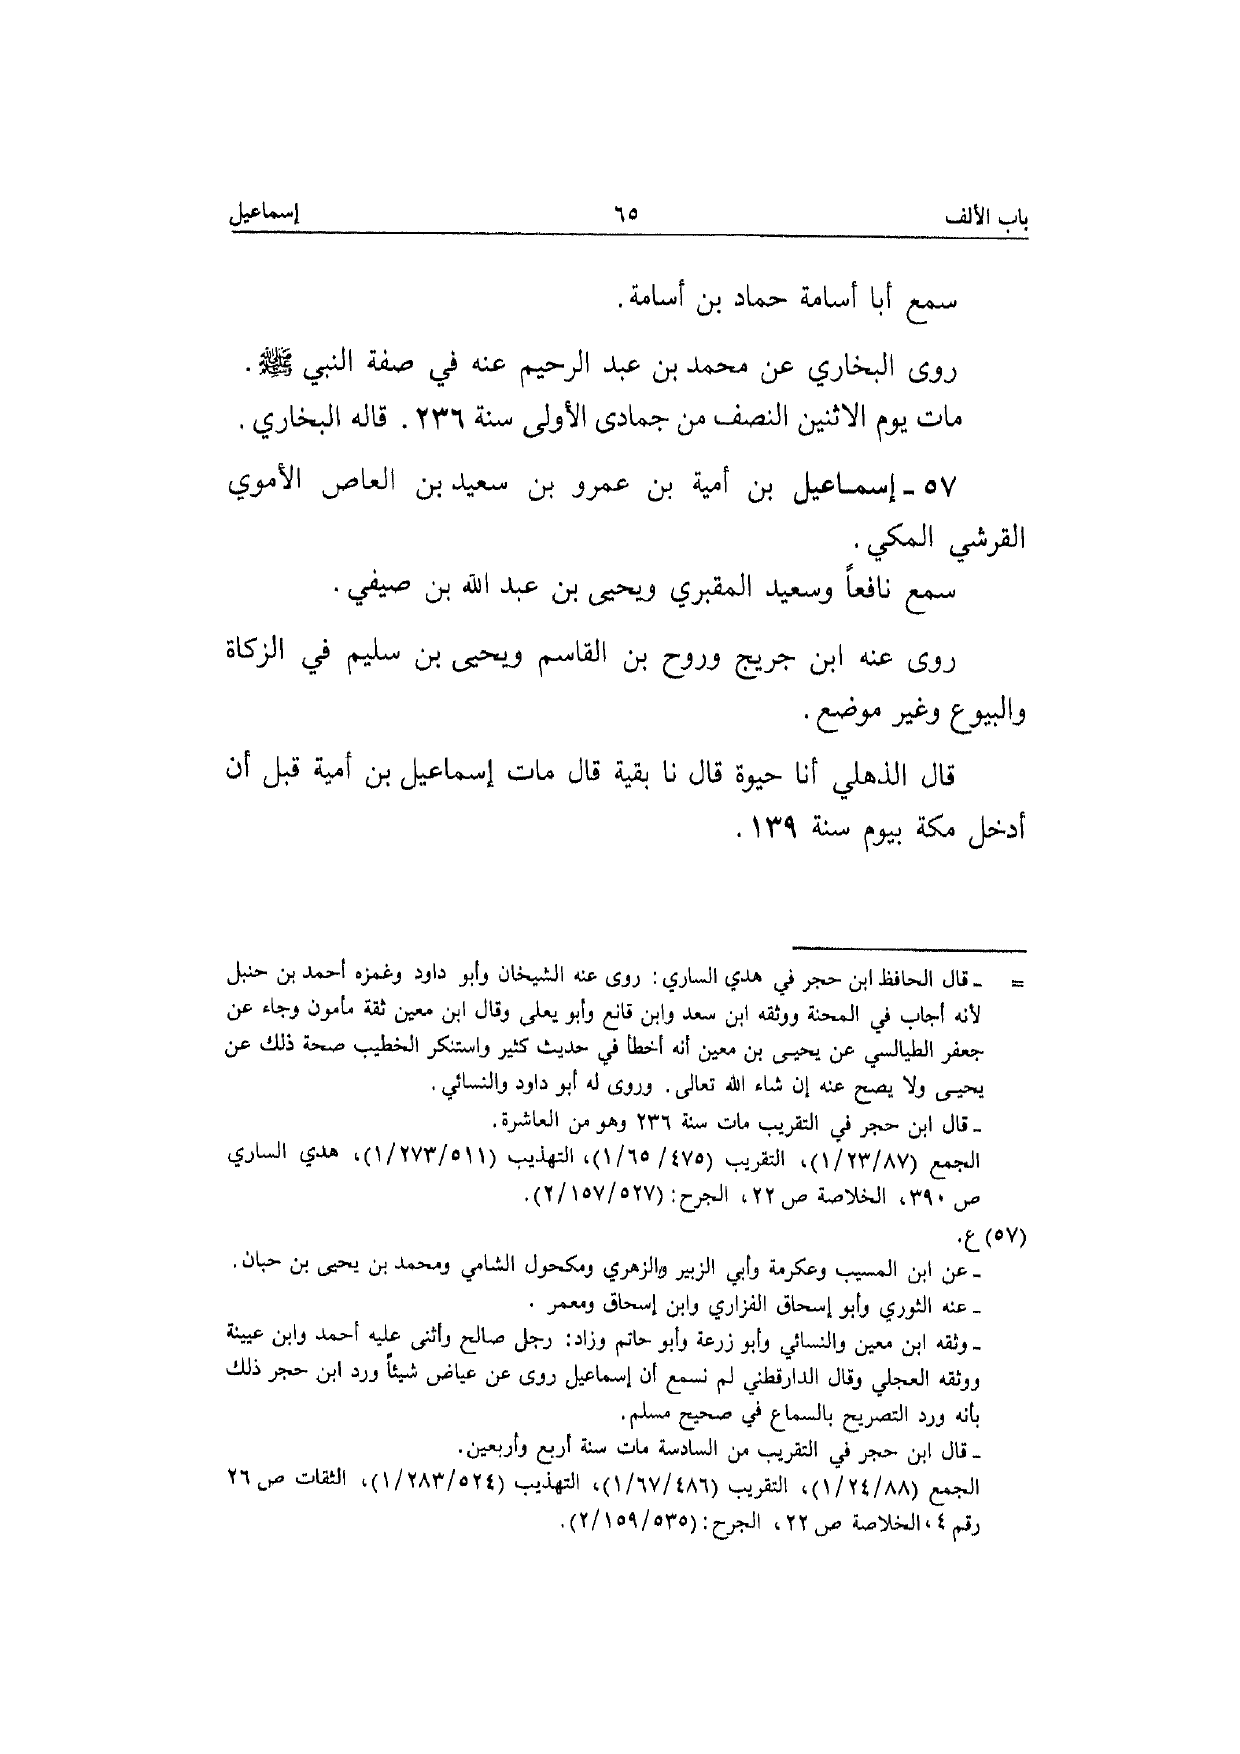 باب الألف ٦٥ إسماعيل
سمع أبا أسامة حماد بن أسامة.
روى البخاري عن محمد بن عبد الرحيم عنه في صفة النبي ﷺ.
مات يوم الاثنين النصف من جمادى الأولى سنة ٢٣٦. قاله البخاري.
٥٧ ـ إسماعيل بن أمية بن عمرو بن سعيد بن العاص الأموي
القرشي المكي.
سمع نافعاً وسعيد المقبري ويحيى بن عبد الله بن صيفي.
روى عنه ابن جريج وروح بن القاسم ويحيى بن سليم في الزكاة
والبيوع وغير موضع.
قال الذهلي أنا حيوة قال نا بقية قال مات إسماعيل بن أمية قبل أن
أدخل مكة بيوم سنة ١٣٩.
= ـ قال الحافظ ابن حجر في هدي الساري: روى عنه الشيخان وأبو داود وغمزه أحمد بن حنبل
لأنه أجاب في المحنة ووثقه ابن سعد وابن قانع وأبو يعلى وقال ابن معين ثقة مأمون وجاء عن
جعفر الطيالسي عن يحيى بن معين أنه أخطأ في حديث كثير واستنكر الخطيب صحة ذلك عن
يحيى ولا يصح عنه إن شاء الله تعالى. وروى له أبو داود والنسائي.
ـ قال ابن حجر في التقريب مات سنة ٢٣٦ وهو من العاشرة.
الجمع (١/٢٣/٨٧)، التقريب (١/٦٥/٤٧٥)، التهذيب (١/٢٧٣/٥١١)، هدي الساري
ص ٣٩٠، الخلاصة ص ٢٢، الجرح: (٢/١٥٧/٥٢٧).
(٥٧) ع.
ـ عن ابن المسيب وعكرمة وأبي الزبير والزهري ومكحول الشامي ومحمد بن يحيى بن حبان.
ـ عنه الثوري وأبو إسحاق الفزاري وابن إسحاق ومعمر.
ـ وثقه ابن معين والنسائي وأبو زرعة وأبو حاتم وزاد: رجل صالح وأثنى عليه أحمد وابن عيينة
ووثقه العجلي وقال الدارقطني لم نسمع أن إسماعيل روى عن عياض شيئاً ورد ابن حجر ذلك
بأنه ورد التصريح بالسماع في صحيح مسلم.
ـ قال ابن حجر في التقريب من السادسة مات سنة أربع وأربعين.
الجمع (١/٢٤/٨٨)، التقريب (١/٦٧/٤٨٦)، التهذيب (١/٢٨٣/٥٢٤)، الثقات ص ٢٦
رقم ٤، الخلاصة ص ٢٢، الجرح: (٢/١٥٩/٥٣٥).